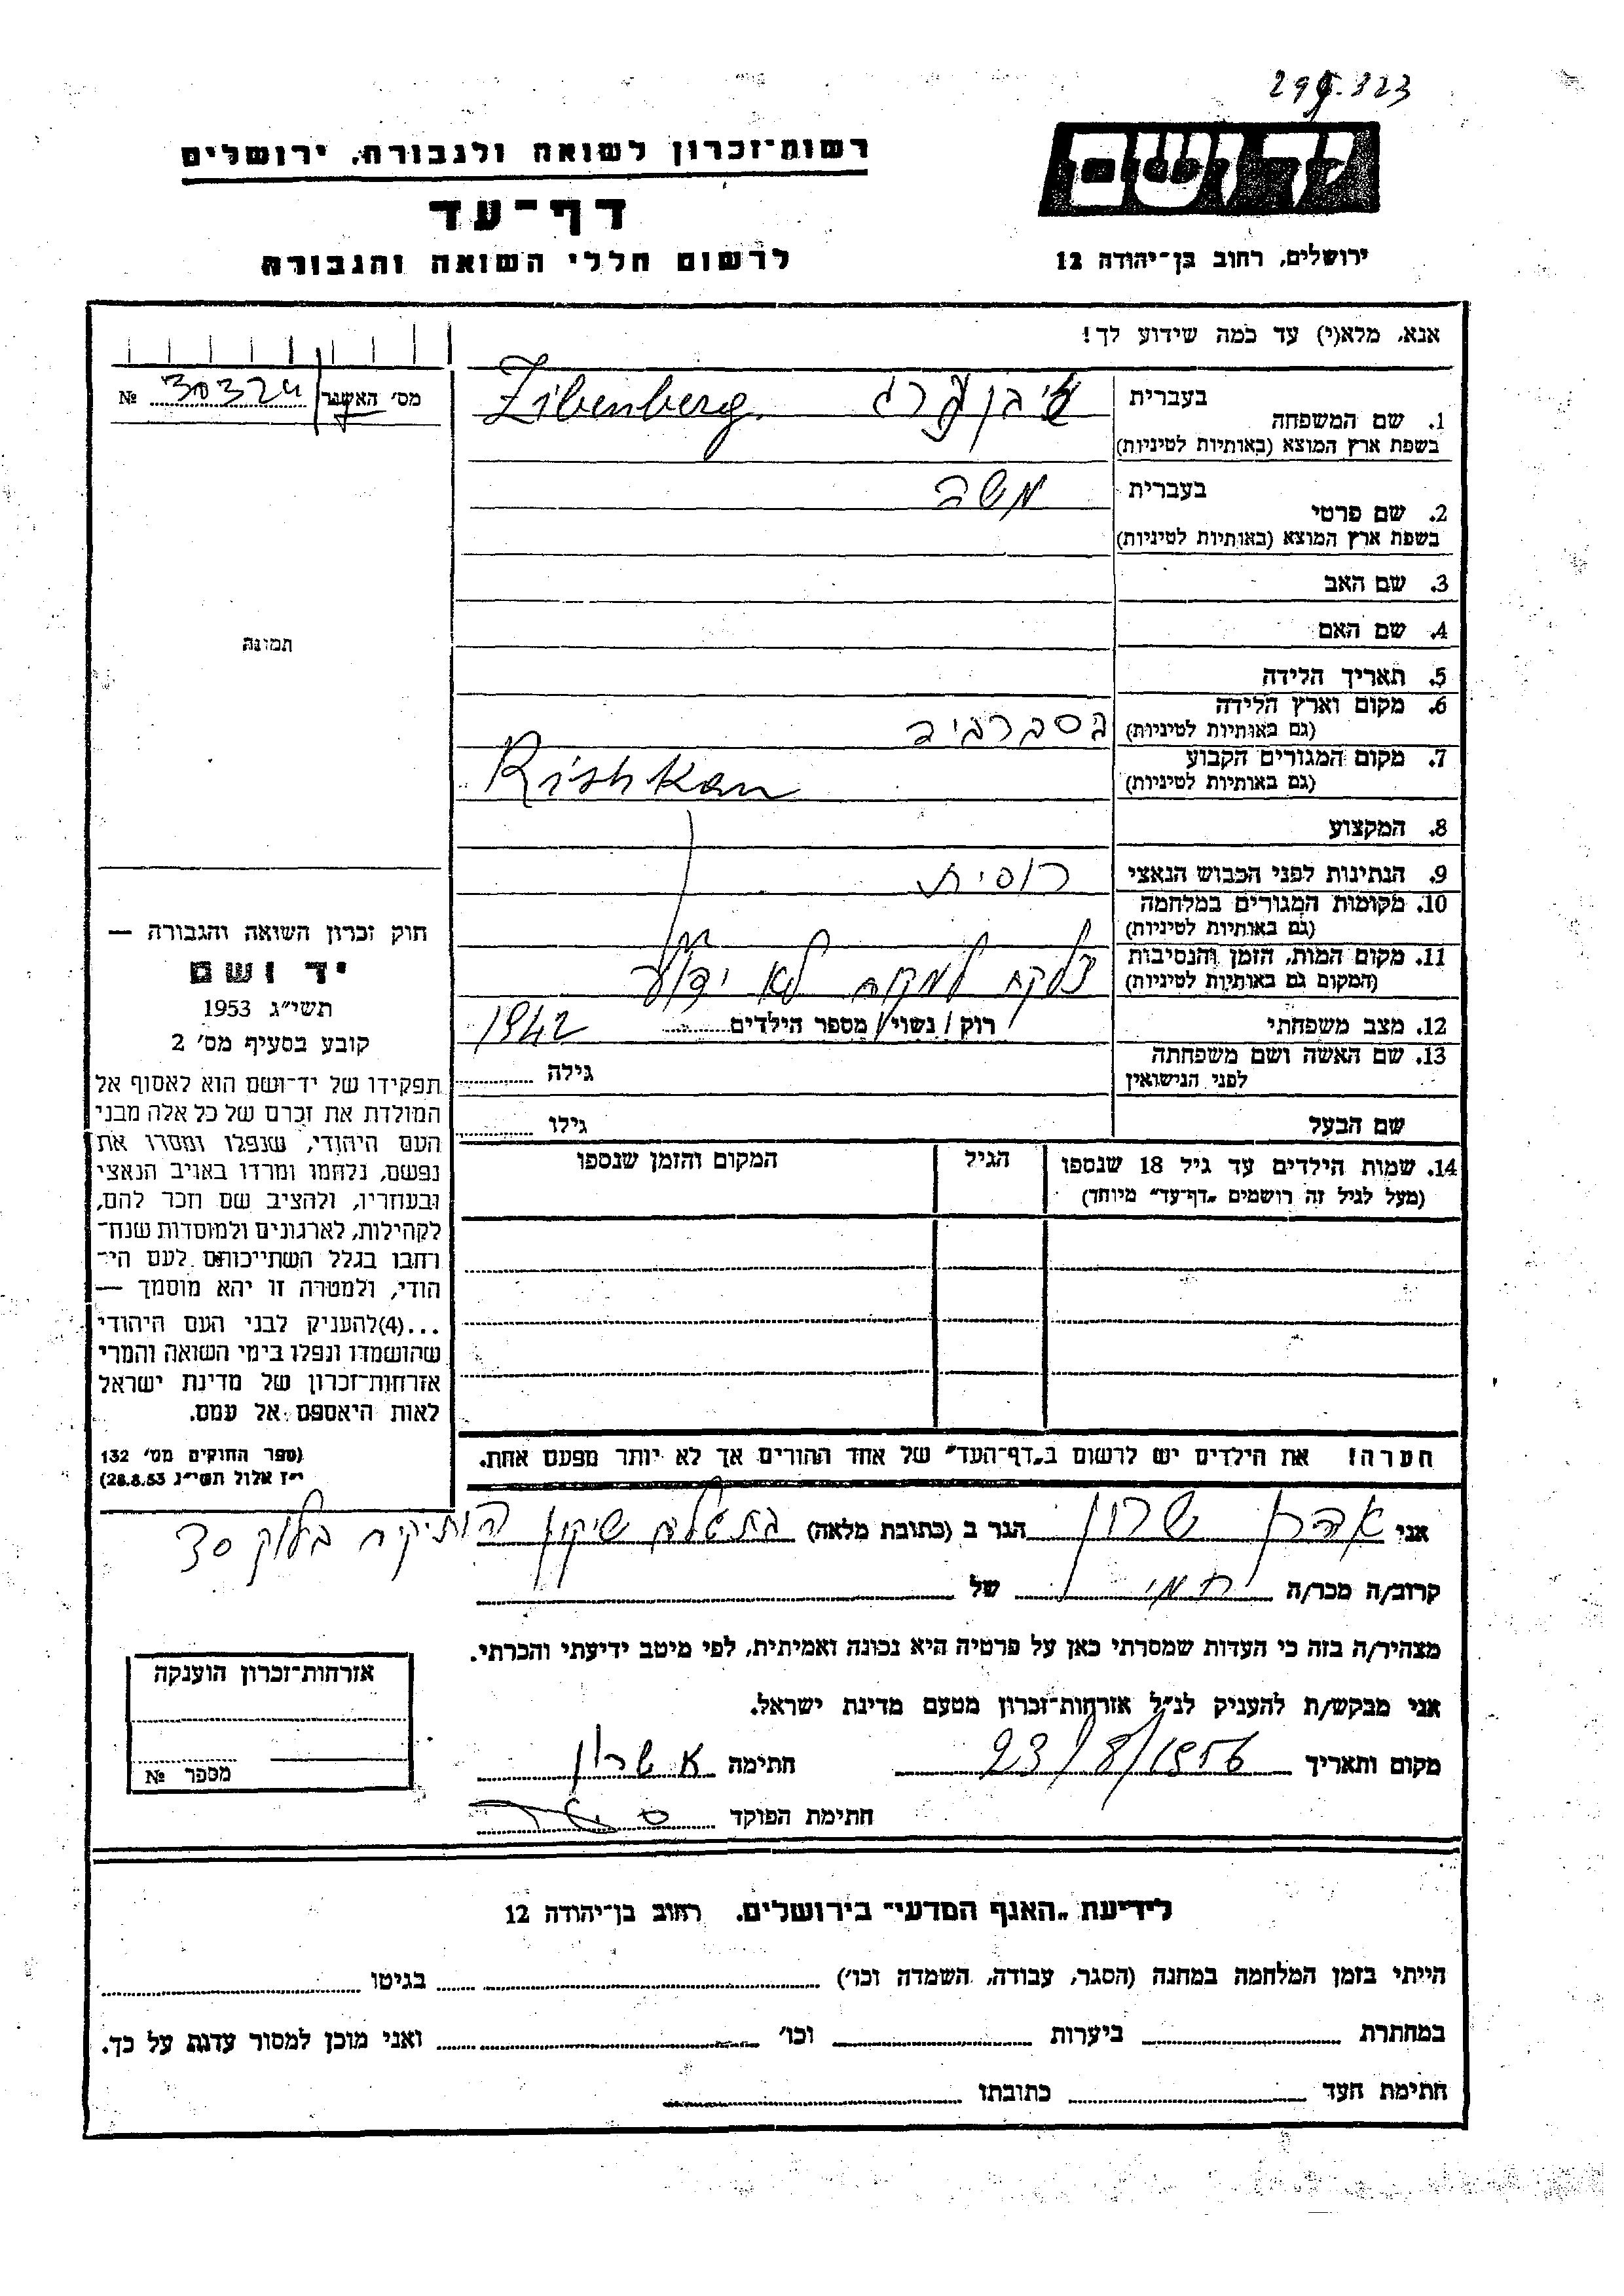 רשות־זכרון לשואה ולגבורה, ירושלים
יד ושם
דף־עד
לרשום חללי השואה והגבורה
ירושלים, רחוב בן־יהודה 12
אנא, מלא(י) עד כמה שידוע לך!
מס׳ האשנר № 30324
1. שם המשפחה בעברית
Zibenberg
בשפת ארץ המוצא (באותיות לטיניות)
2. שם פרטי בעברית משה
בשפת ארץ המוצא (באותיות לטיניות)
3. שם האב
4. שם האם
תמונה
5. תאריך הלידה
6. מקום וארץ הלידה
(גם באותיות לטיניות) בסרביה
7. מקום המגורים הקבוע Rishkan
(גם באותיות לטיניות)
8. המקצוע
9. הנתינות לפני הכבוש הנאצי רוסית
10. מקומות המגורים במלחמה
(גם באותיות לטיניות)
11. מקום המות, הזמן והנסיבות נלקח למקום לא ידוע
(המקום גם באותיות לטיניות)
12. מצב משפחתי רוק / נשוי / מספר הילדים 1942
13. שם האשה ושם משפחתה גילה
לפני הנישואין
שם הבעל גילו
חוק זכרון השואה והגבורה —
יד ושם
תשי״ג 1953
קובע בסעיף מס׳ 2
תפקידו של יד־ושם הוא לאסוף אל
המולדת את זכרם של כל אלה מבני
העם היהודי, שנפלו ומסרו את
נפשם, נלחמו ומרדו באויב הנאצי
ובעוזריו, ולהציב שם וזכר להם,
לקהילות, לארגונים ולמוסדות שנח־
רחבו בגלל השתייכותם לעם הי־
הודי, ולמטרה זו יהא מוסמך —
...(4)להעניק לבני העם היהודי
שהושמדו ונפלו בימי השואה והמרי
אזרחות־זכרון של מדינת ישראל
לאות היאספם אל עמם.
(ספר החוקים מס׳ 132
י״ז אלול תשי״ג 28.8.53)
14. שמות הילדים עד גיל 18 שנספו הגיל המקום והזמן שנספו
(מעל לגיל זה רושמים „דף־עד״ מיוחד)
הערה! את הילדים יש לרשום ב„דף־העד״ של אחד ההורים אך לא יותר מפעם אחת.
אני אהרן שרון הגר ב (כתובת מלאה) שיכון הותיקים בלוק 30
קרוב/ה מכר/ה של
מצהיר/ה בזה כי העדות שמסרתי כאן על פרטיה היא נכונה ואמיתית, לפי מיטב ידיעתי והכרתי.
אני מבקש/ת להעניק לנ״ל אזרחות־זכרון מטעם מדינת ישראל.
מקום ותאריך 23/8/1956 חתימה א שרון
חתימת הפוקד
אזרחות־זכרון הוענקה
מספר №
לידיעת „האגף המדעי״ בירושלים, רחוב בן־יהודה 12
הייתי בזמן המלחמה במחנה (הסגר, עבודה, השמדה וכו׳) בגיטו
במחתרת ביערות וכו׳ ואני מוכן למסור עדות על כך.
חתימת העד כתובתו